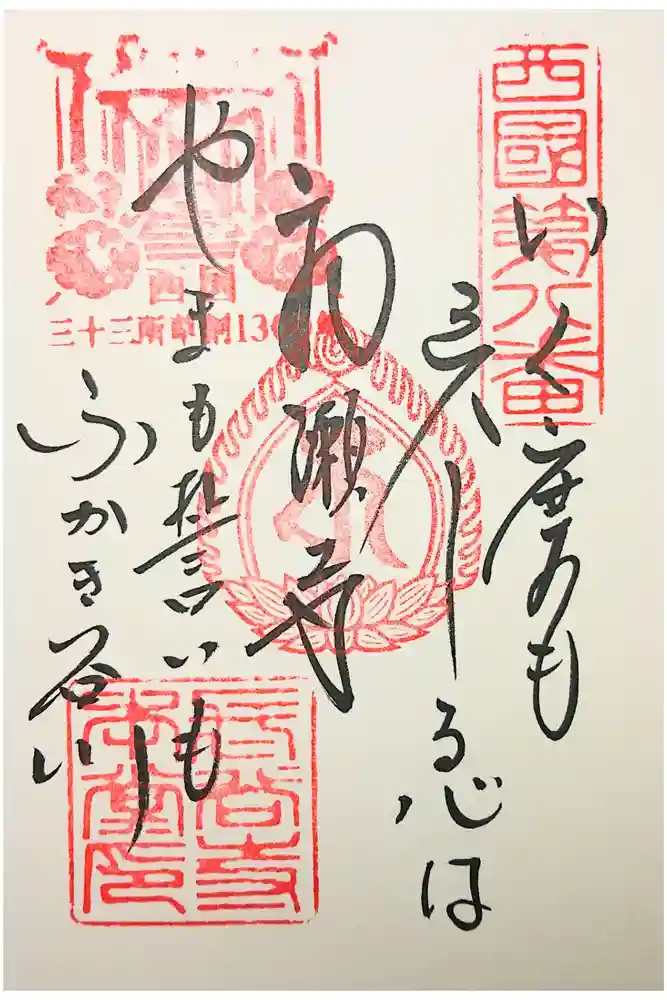 西國第八番
いく度も
参る心は
初瀬寺
やまも誓いも
ふかき谷川
西国
三十三所草創1300年
長谷寺
本堂印